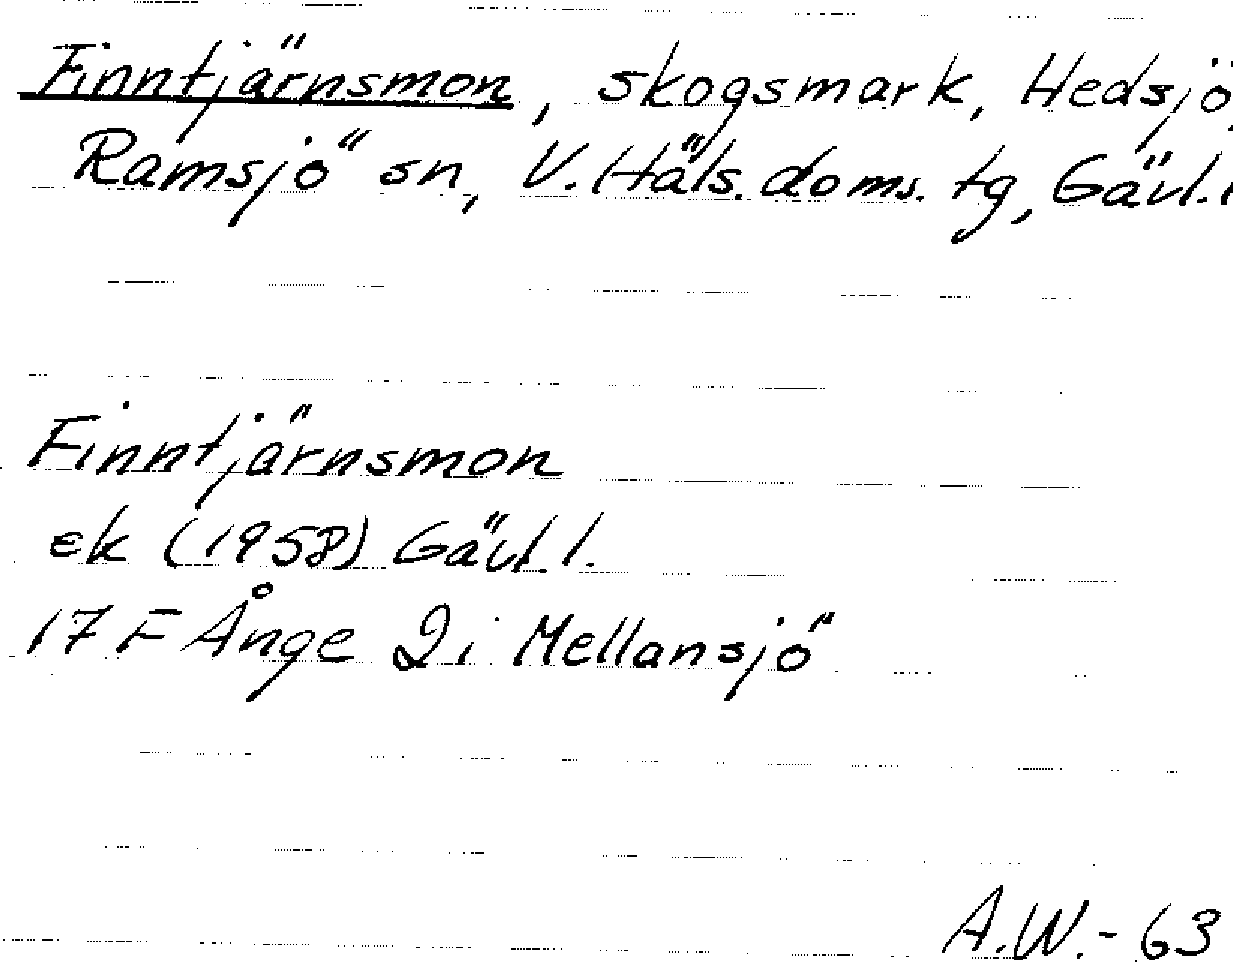 Finntjärnsmon, skogsmark, Hedsjö,
Ramsjö sn, V. Häls. doms. tg, Gävl. l
Finntjärnsmon
ek (1958) Gävl. l.
17 F Ånge 2 i Mellansjö
A.W.-63